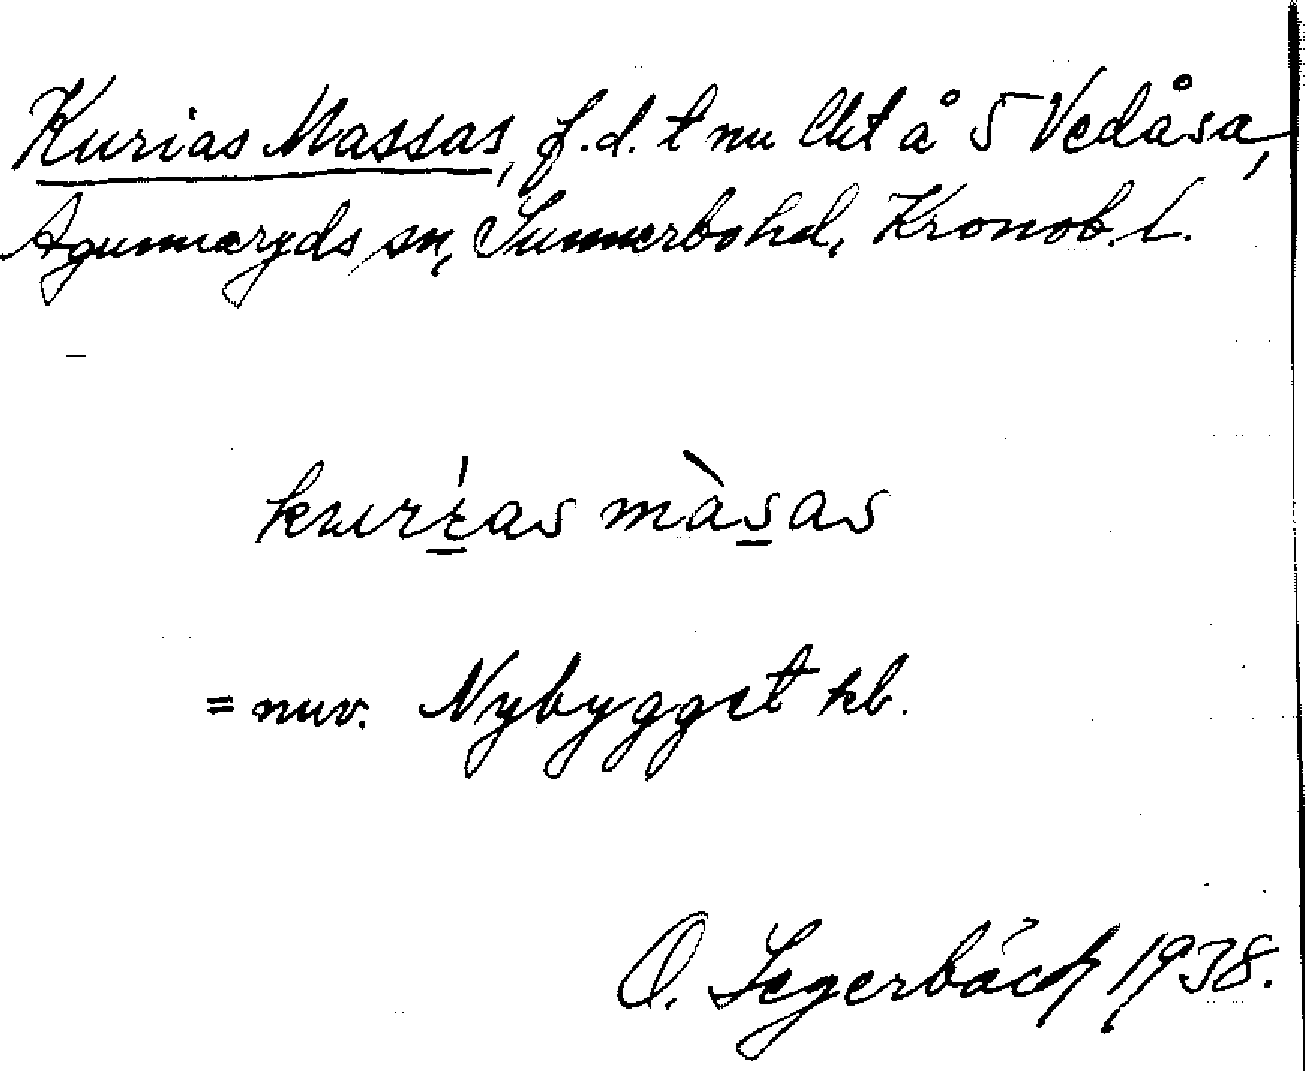 Kurias Massas, f.d. t nu lht å 5 Vedåsa,
Agunnaryds sn, Sunnerbo hd, Kronob. l.
kurí̱as màs̱as
= nuv. Nybygget kb.
O. Segerbäck 1938.